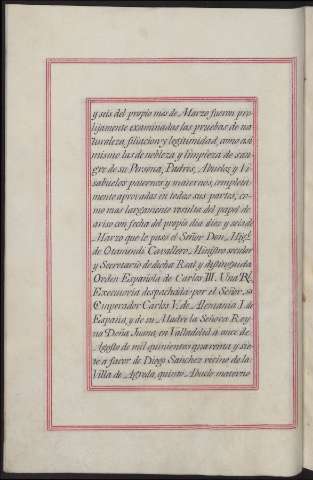 y seis del propio mes de Marzo, fueron pro
lijamente examinadas las pruebas de na
turaleza, filiacion y legitimidad, como asi
mismo las de nobleza y limpieza de san
gre de su Persona, Padres, Abuelos, y Vi
sabuelos paternos y maternos, completa
mente aprovadas en todas sus partes, co
mo mas largamente resulta del papel de
aviso con fecha del propio dia diez y seis de
Marzo que le pasó el Señor Don Migl.
de Otamendi Cavallero Ministro secular
y Secretario de dicha Real y distinguida
Orden Española de Carlos III. Una Rl.
Executoria despachada por el Señor
Emperador Carlos V. de Alemania I. de
España, y de su Madre la Señora Rey
na Doña Juana, en Valladolid à once de
Agosto de mil quinientos quarenta y sie
te a favor de Diego Sanchez vecino de la
Villa de Agreda, quinto Abuelo materno